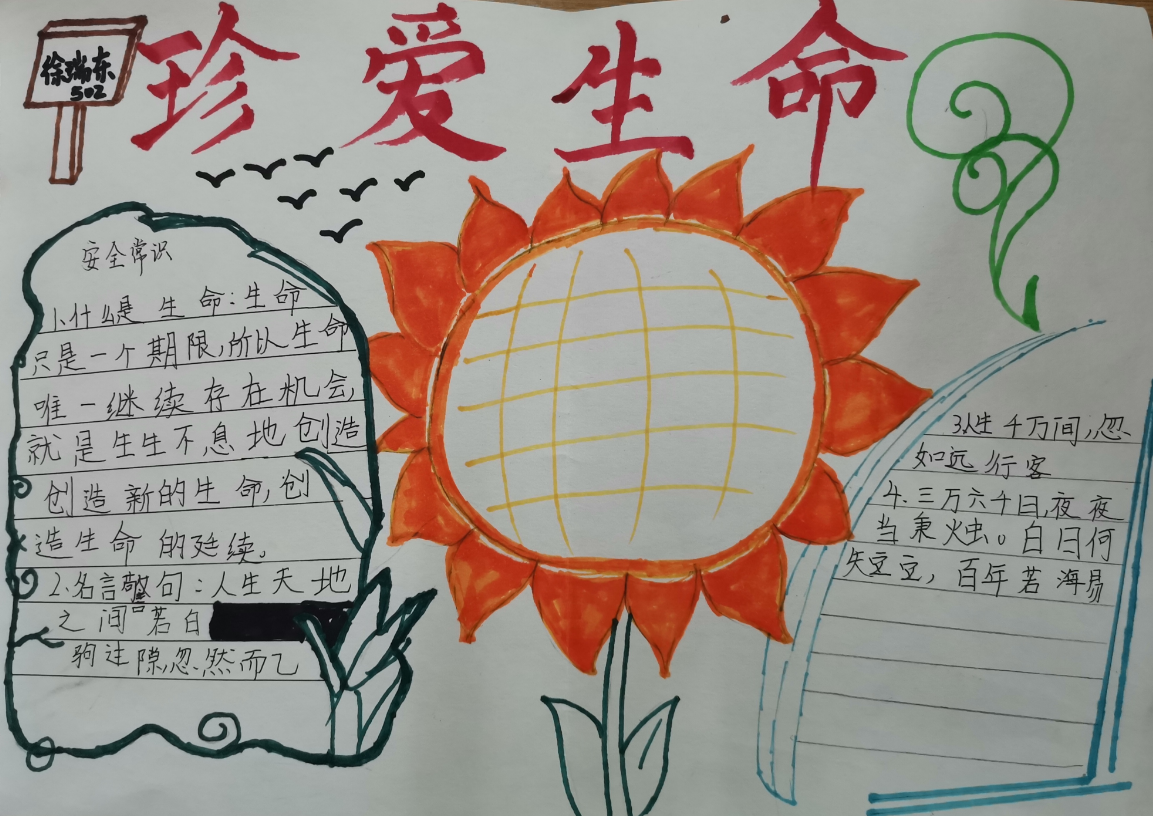 徐瑞东
502
珍爱生命
安全常识
1、什么是生命：生命
只是一个期限，所以生命
唯一继续存在机会，
就是生生不息地创造
创造新的生命，创
造生命的延续。
2.名言警句：人生天地
之间若白
驹过隙忽然而已
3人生千万间，忽
如远行客
4.三万六千日，夜夜
当秉烛。白日何
矢豆豆，百年若海易